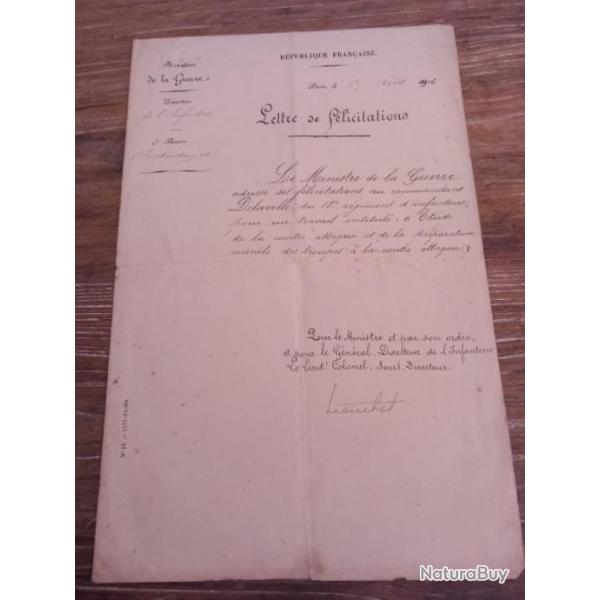 RÉPUBLIQUE FRANÇAISE.
Ministère
de la Guerre
Direction
de l'Infanterie
Paris, le août 191
Lettre de félicitations
Le Ministre de la Guerre
adresse ses félicitations au commandant
Delaville, du 18e régiment d'infanterie,
pour un travail intitulé : « Étude
de la contre attaque et de la préparation
morale des troupes à la contre attaque »
Pour le Ministre et par son ordre,
et pour le Général, Directeur de l'Infanterie
Le Lieut. Colonel, Sous Directeur
NaturaBuy